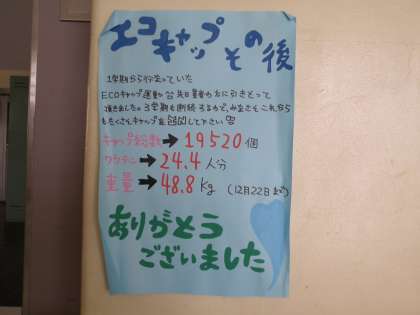 エコキャップその後
1学期から行なっていた
ECOキャップ運動 先日業者の方に引きとって
頂きました。3学期も継続するので、みなさんこれからも
たくさんキャップを して下さい
キャップ総数→19520個
ワクチン→24.4人分
重量→48.8kg (12月22日まで)
ありがとう
ございました